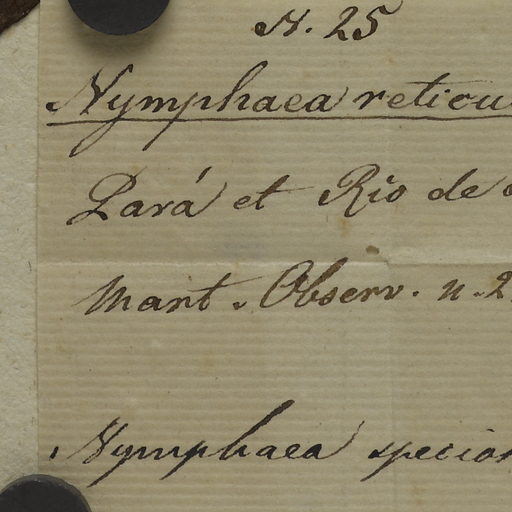 N. 25
Nymphaea reticu
Pará et Rio de
Mart. Observ. n. 2
Nymphaea specios